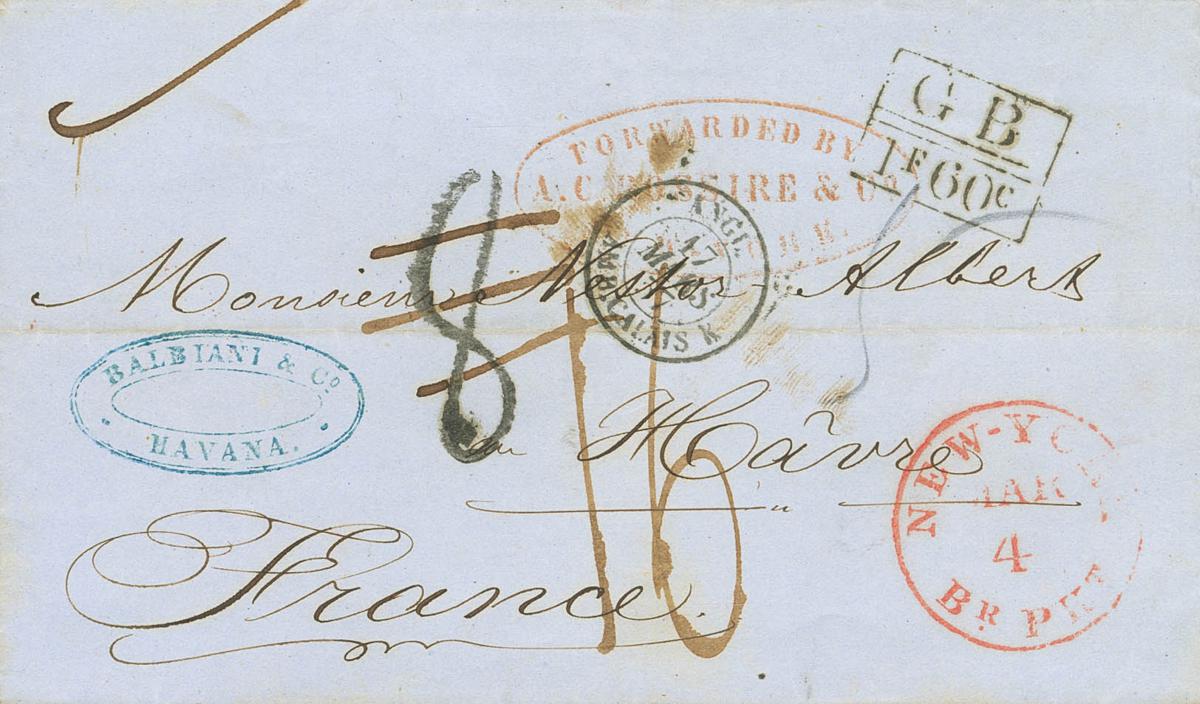 G B
1F60c
FORWARDED BY
& Co
8
ANGL.
17
MARS
CALAIS
Monsieur Nestor Albert
BALBIANI & Co
HAVANA.
au Hâvre
16
France.
NEW-YORK
MAR
4
BR. PKT